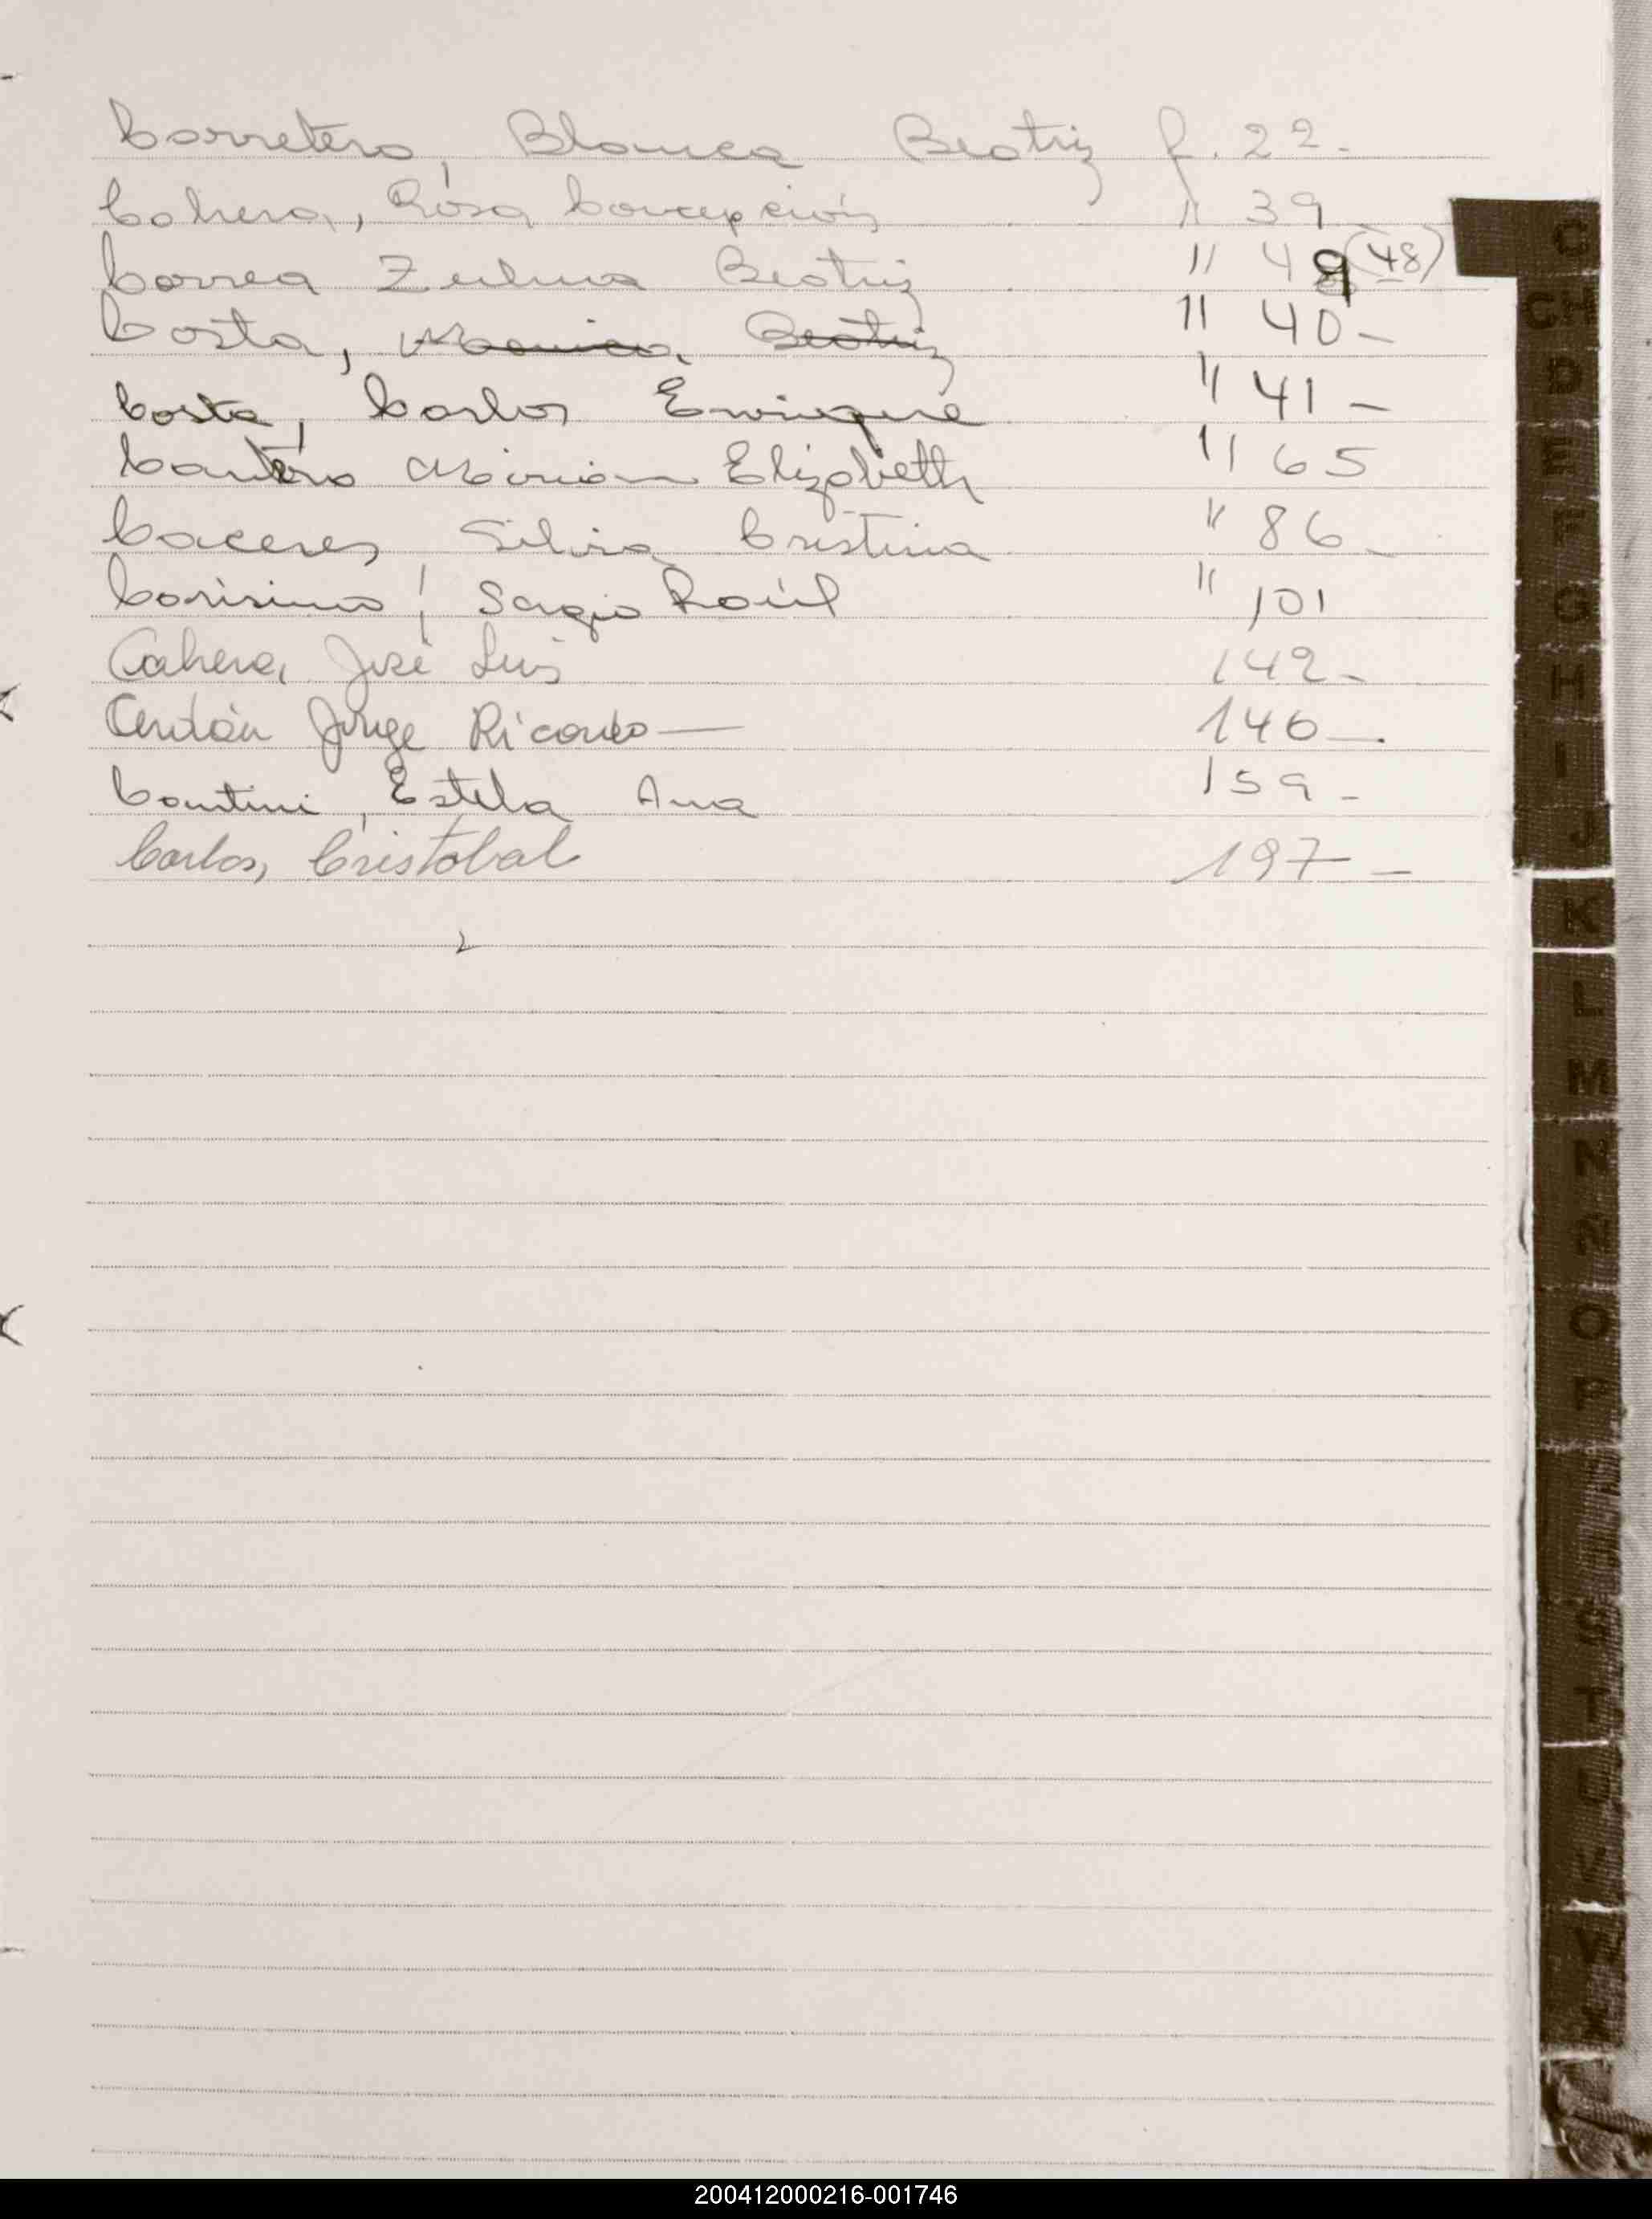 Carretero, Blanca Beatriz f. 22-
Cabrera, Rosa Concepción " 39
Correa Zulma Beatriz " 49 (48)
Costa, Monica Beatriz " 40-
Costa, Carlos Enrique " 41-
Cantero Miriam Elizabeth " 65
Caceres, Silvia Cristina " 86-
Carisimo, Sergio Raúl " 101
Cabrera, José Luis 142-
Jorge Ricardo- 146-.
Contini, Estela Ana 159-
Carlos, Cristobal 197-
C
CH
D
E
F
G
H
I
J
K
L
M
N
Ñ
O
P
S
T
U
V
200412000216-001746